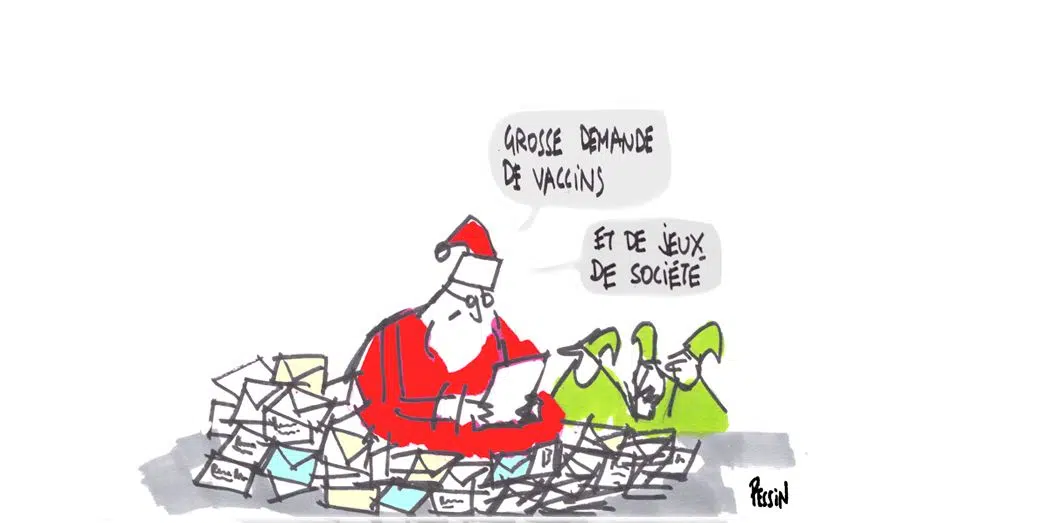 GROSSE DEMANDE
DE VACCINS
ET DE JEUX
DE SOCIÉTÉ
PESSIN